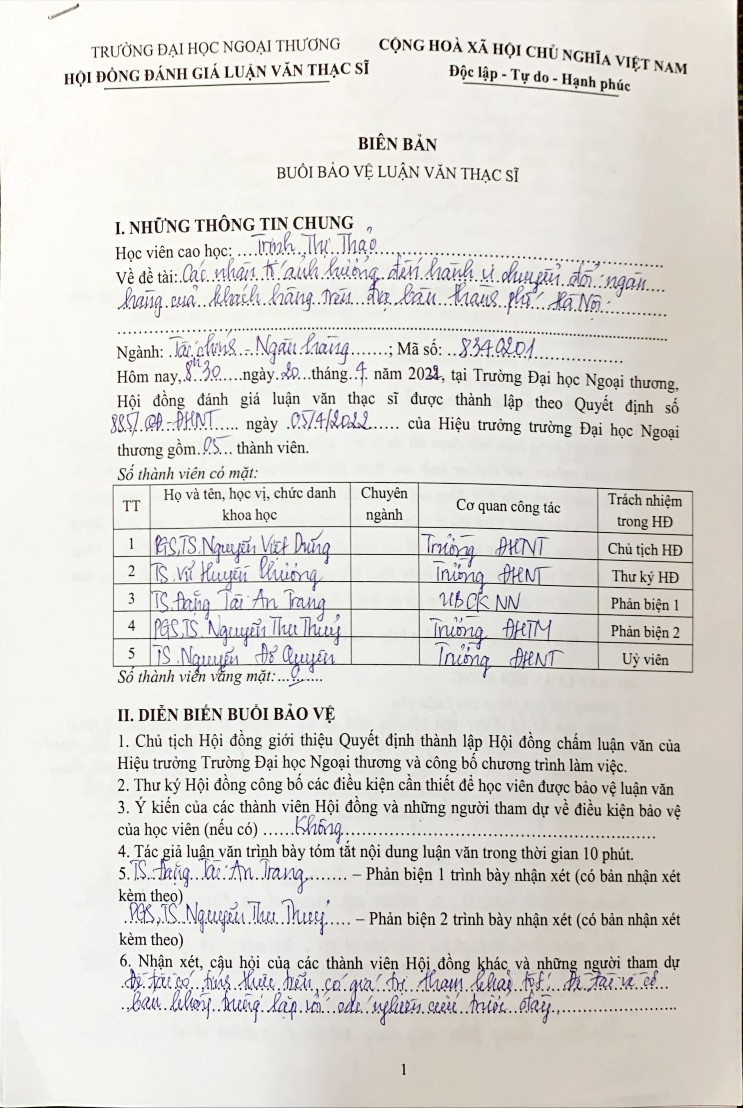 TRƯỜNG ĐẠI HỌC NGOẠI THƯƠNG
HỘI ĐỒNG ĐÁNH GIÁ LUẬN VĂN THẠC SĨ
CỘNG HOÀ XÃ HỘI CHỦ NGHĨA VIỆT NAM
Độc lập - Tự do - Hạnh phúc
BIÊN BẢN
BUỔI BẢO VỆ LUẬN VĂN THẠC SĨ
I. NHỮNG THÔNG TIN CHUNG
Học viên cao học: Trịnh Thị Thảo
Về đề tài: Các nhân tố ảnh hưởng đến hành vi chuyển đổi ngân
hàng của khách hàng trên địa bàn thành phố Hà Nội
Ngành: Tài chính - Ngân hàng; Mã số: 8340201
Hôm nay, 8h30 ngày 20 tháng 4 năm 2022, tại Trường Đại học Ngoại thương,
Hội đồng đánh giá luận văn thạc sĩ được thành lập theo Quyết định số
885/QĐ-ĐHNT ngày 05/4/2022 của Hiệu trưởng trường Đại học Ngoại
thương gồm 05 thành viên.
Số thành viên có mặt:
TT Họ và tên, học vị, chức danh khoa học Chuyên ngành Cơ quan công tác Trách nhiệm trong HĐ
1 PGS,TS. Nguyễn Việt Dũng Trường ĐHNT Chủ tịch HĐ
2 TS. Vũ Huyền Phương Trường ĐHNT Thư ký HĐ
3 TS. Đặng Tài An Trang UBCKNN Phản biện 1
4 PGS,TS. Nguyễn Thu Thuỷ Trường ĐHTM Phản biện 2
5 TS. Nguyễn Đỗ Quyên Trường ĐHNT Uỷ viên
Số thành viên vắng mặt: 0
II. DIỄN BIẾN BUỔI BẢO VỆ
1. Chủ tịch Hội đồng giới thiệu Quyết định thành lập Hội đồng chấm luận văn của
Hiệu trưởng Trường Đại học Ngoại thương và công bố chương trình làm việc.
2. Thư ký Hội đồng công bố các điều kiện cần thiết để học viên được bảo vệ luận văn
3. Ý kiến của các thành viên Hội đồng và những người tham dự về điều kiện bảo vệ
của học viên (nếu có) Không
4. Tác giả luận văn trình bày tóm tắt nội dung luận văn trong thời gian 10 phút.
5. TS. Đặng Tài An Trang – Phản biện 1 trình bày nhận xét (có bản nhận xét
kèm theo)
PGS,TS. Nguyễn Thu Thuỷ – Phản biện 2 trình bày nhận xét (có bản nhận xét
kèm theo)
6. Nhận xét, câu hỏi của các thành viên Hội đồng khác và những người tham dự
Đề tài có tính thực tiễn, có giá trị tham khảo tốt. Đề tài về cơ
bản không trùng lặp với các nghiên cứu trước đây.
1